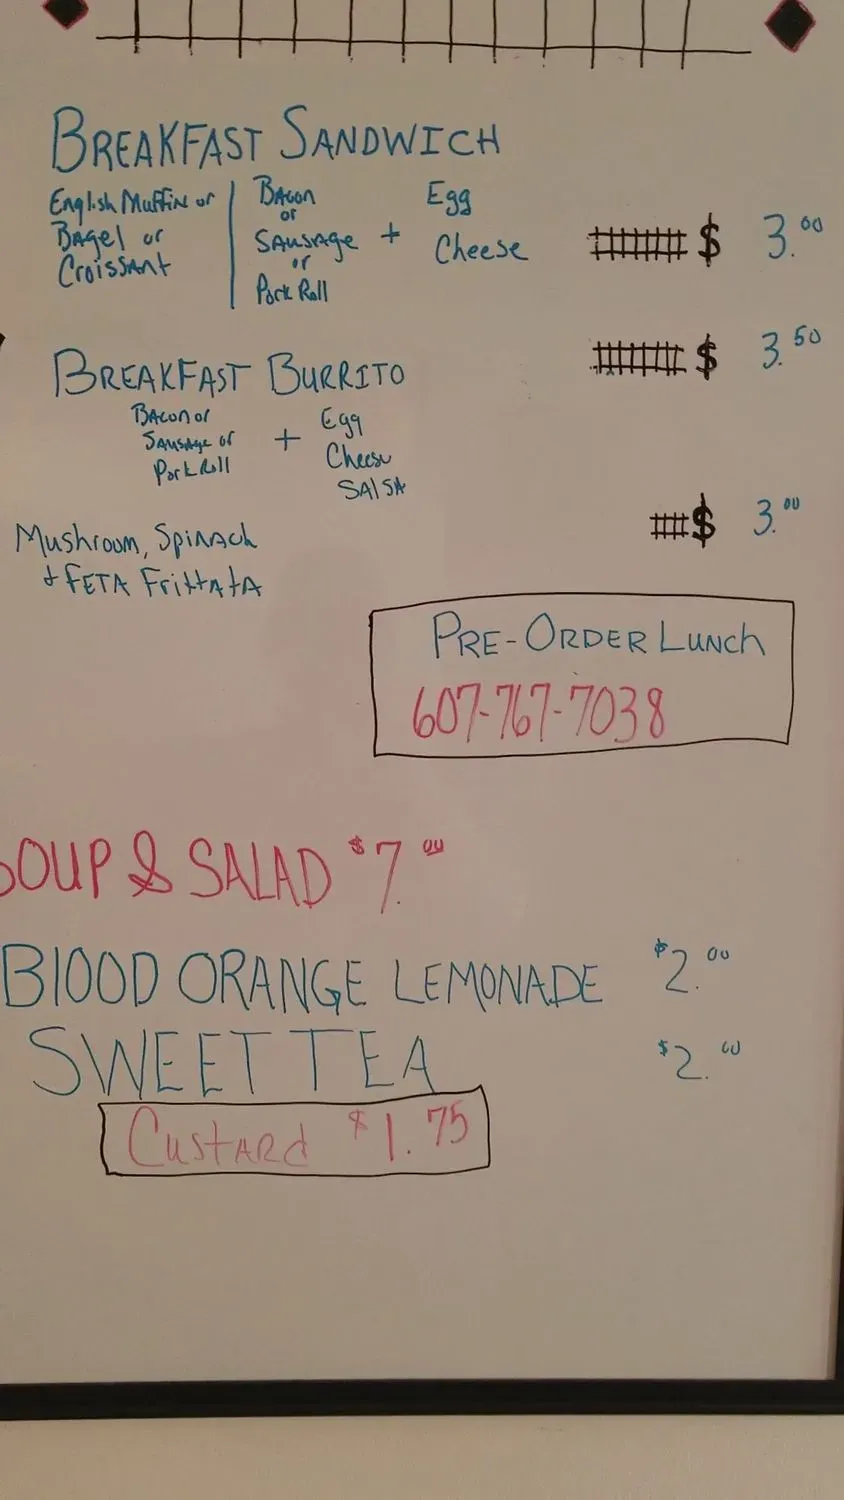 BREAKFAST SANDWICH
English Muffin or
Bagel or
Croissant
Bacon
or
Sausage
or
Pork Roll
+
Egg
Cheese
$ 3.00
BREAKFAST BURRITO
$ 3.50
Bacon or
Sausage or
Pork Roll
+
Egg
Cheese
SAlSA
Mushroom, Spinach
+ FETA FrittAtA
$ 3.00
PRE-ORDER LUNCh
607-767-7038
SOUP & SALAD $7.00
BlOOD ORANGE LEMONADE $2.00
SWEET TEA $2.00
Custard $1.75